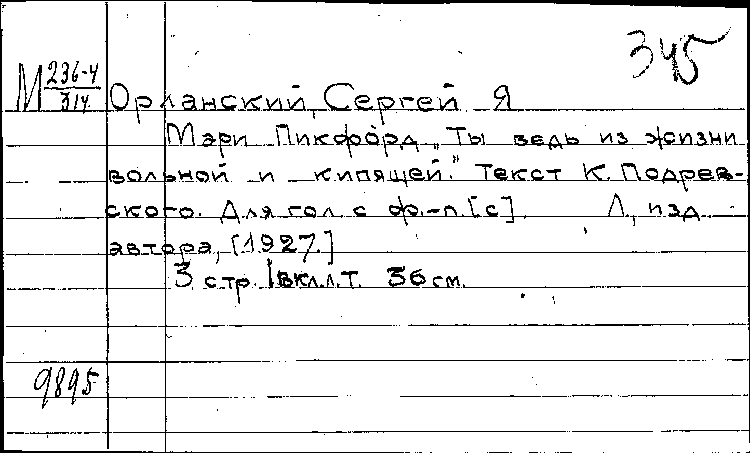 345
М 236-4
314
Орланский, Сергей Я
Мэри Пикфорд „Ты ведь из жизни
вольной и кипящей." Текст К. Подрев-
ского. Для гол. с ф.-п. [c]. Л., изд.
автора, [1927.]
3 стр. вкл. л.т. 36 см.
9895